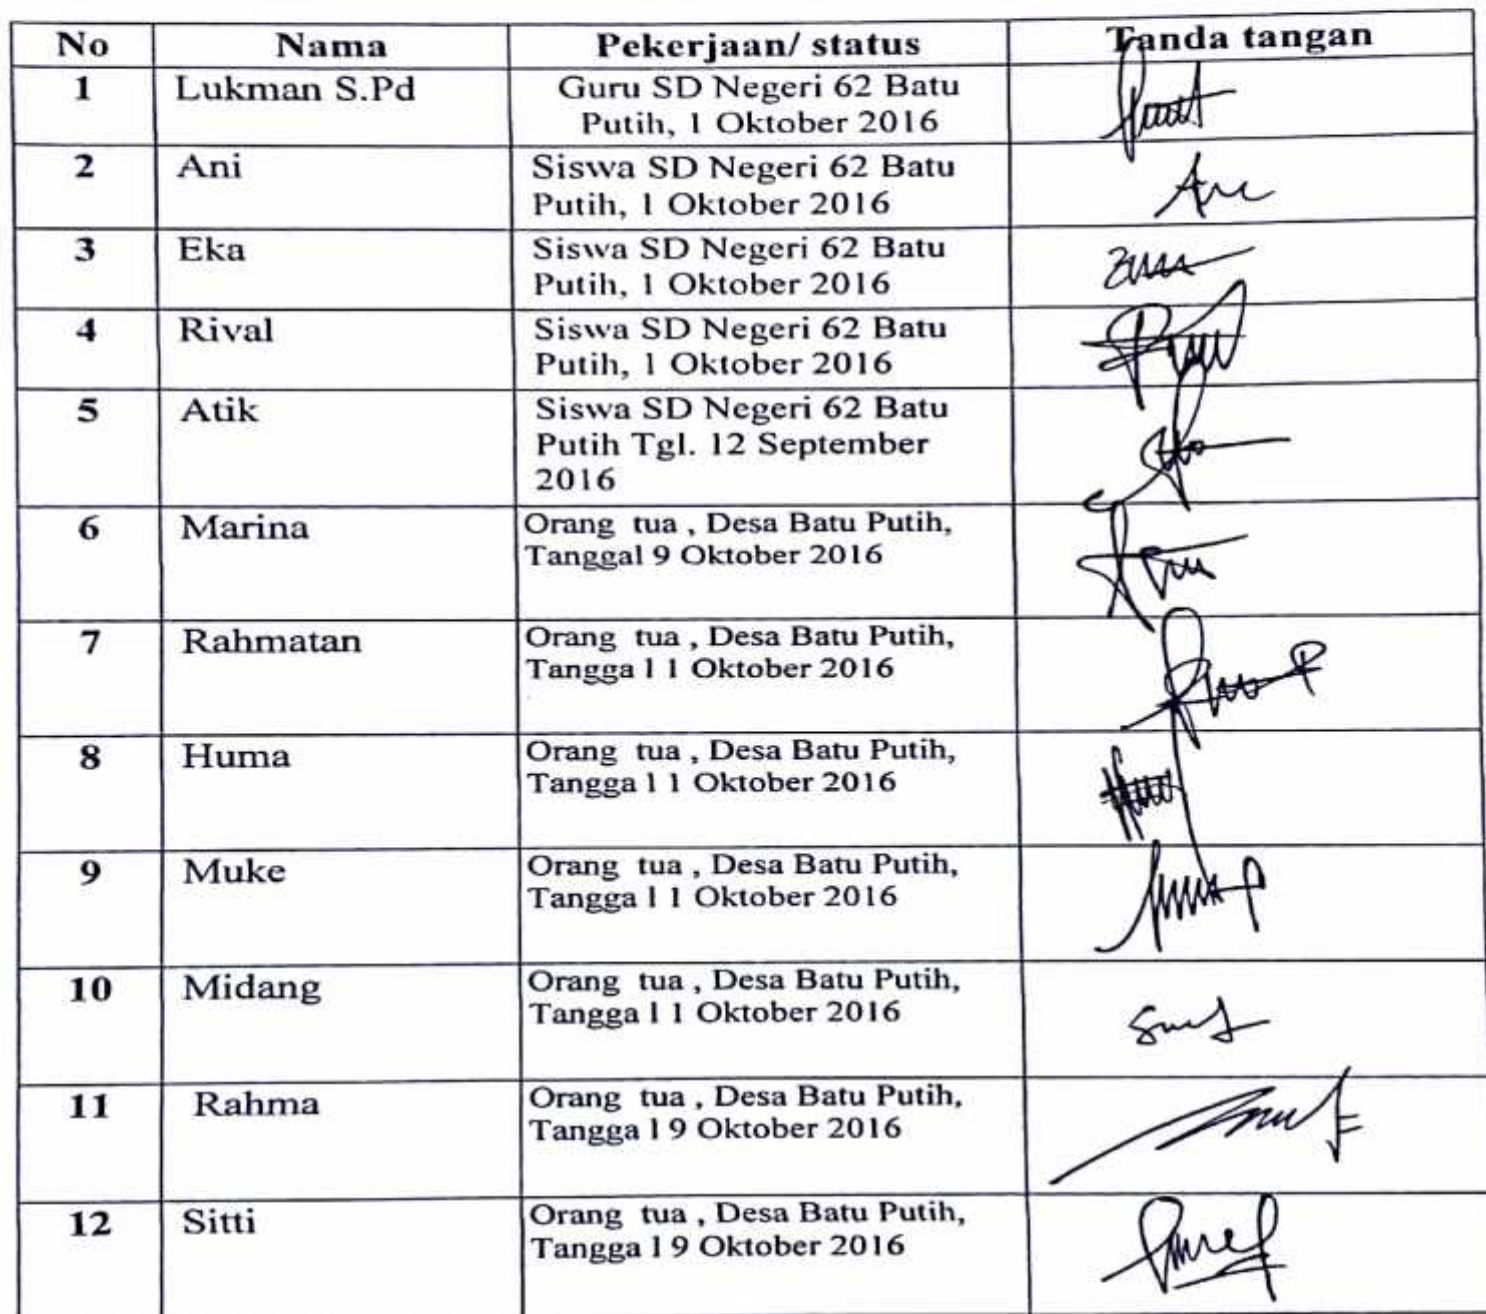 No Nama Pekerjaan/ status Tanda tangan
1 Lukman S.Pd Guru SD Negeri 62 Batu
Putih, 1 Oktober 2016
2 Ani Siswa SD Negeri 62 Batu
Putih, 1 Oktober 2016
3 Eka Siswa SD Negeri 62 Batu
Putih, 1 Oktober 2016
4 Rival Siswa SD Negeri 62 Batu
Putih, 1 Oktober 2016
5 Atik Siswa SD Negeri 62 Batu
Putih Tgl. 12 September
2016
6 Marina Orang tua , Desa Batu Putih,
Tanggal 9 Oktober 2016
7 Rahmatan Orang tua , Desa Batu Putih,
Tangga l 1 Oktober 2016
8 Huma Orang tua , Desa Batu Putih,
Tangga l 1 Oktober 2016
9 Muke Orang tua , Desa Batu Putih,
Tangga l 1 Oktober 2016
10 Midang Orang tua , Desa Batu Putih,
Tangga l 1 Oktober 2016
11 Rahma Orang tua , Desa Batu Putih,
Tangga l 9 Oktober 2016
12 Sitti Orang tua , Desa Batu Putih,
Tangga l 9 Oktober 2016